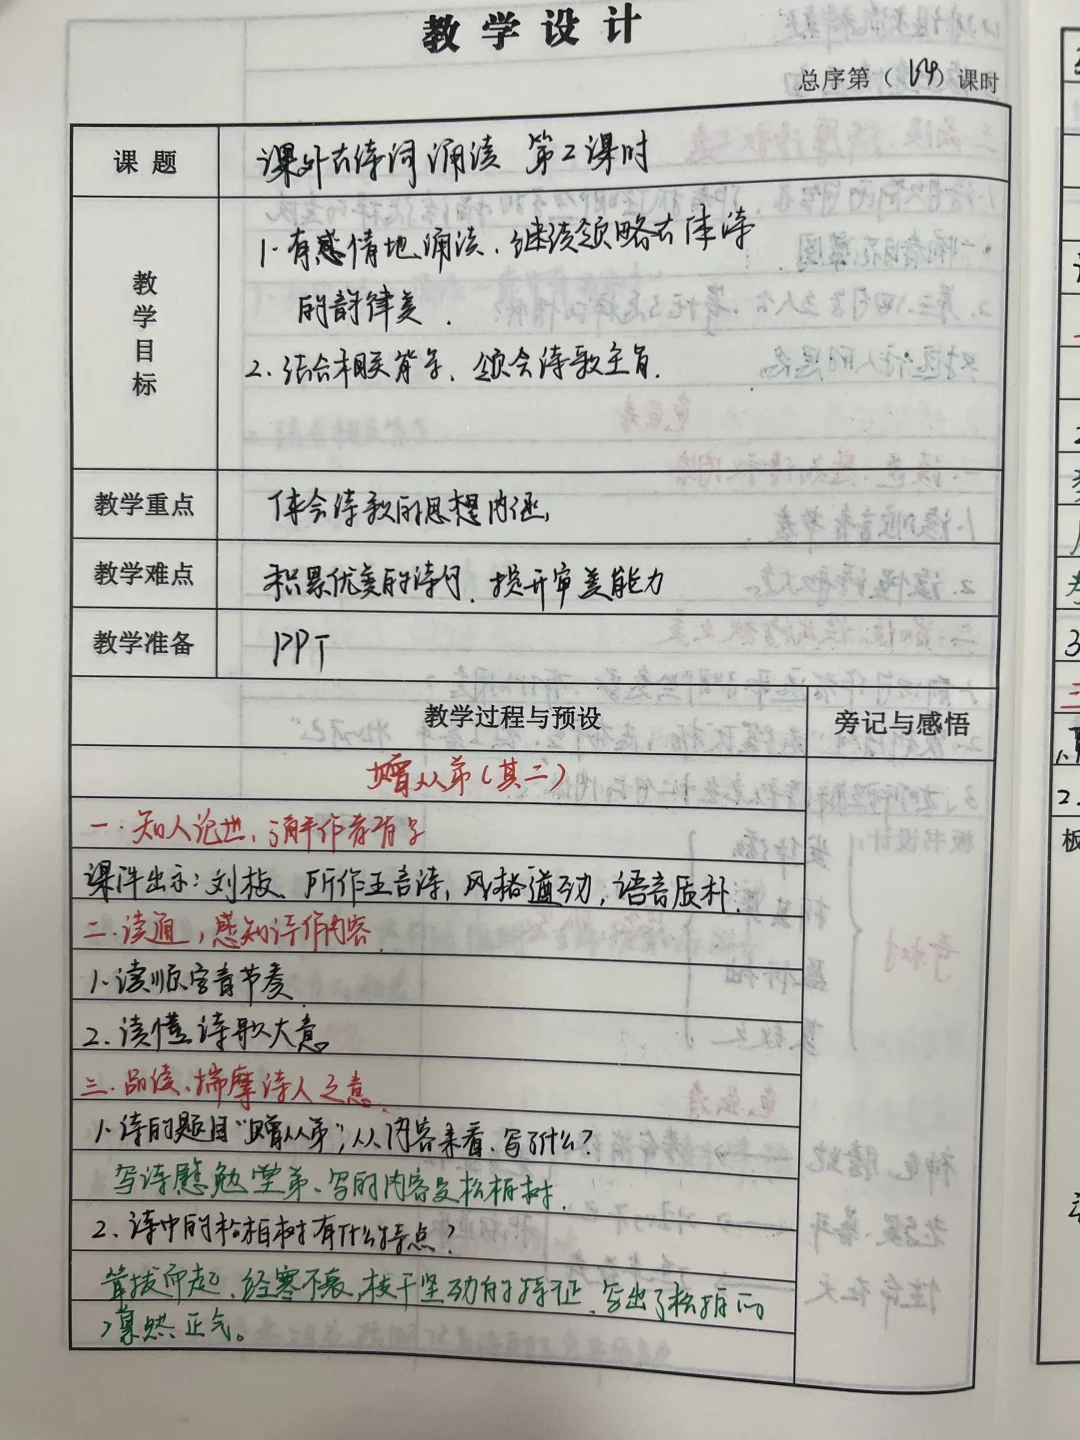 教学设计
总序第（154）课时
课题 课外古诗词诵读 第2课时
教学目标
1.有感情地诵读、继续领略古体诗
的韵律美.
2.结合相关背景、领会诗歌主旨.
教学重点 体会诗歌的思想内涵,
教学难点 积累优美的诗句、提升审美能力
教学准备 PPT
教学过程与预设 旁记与感悟
赠从弟(其二)
一.知人论世,了解作者背景
课件出示:刘桢、所作五言诗,风格遒劲,语言质朴.
二.读通,感知诗作内容.
1.读顺字音节奏
2.读懂诗歌大意
三.品读、揣摩诗人之意.
1.诗的题目"赠从弟",从内容来看、写了什么?
写诗慰勉堂弟、写的内容是松柏树.
2.诗中的松柏树有什么特点?
耸拔而起、经寒不衰、枝干坚劲的特征、写出了松柏的
凛然正气。